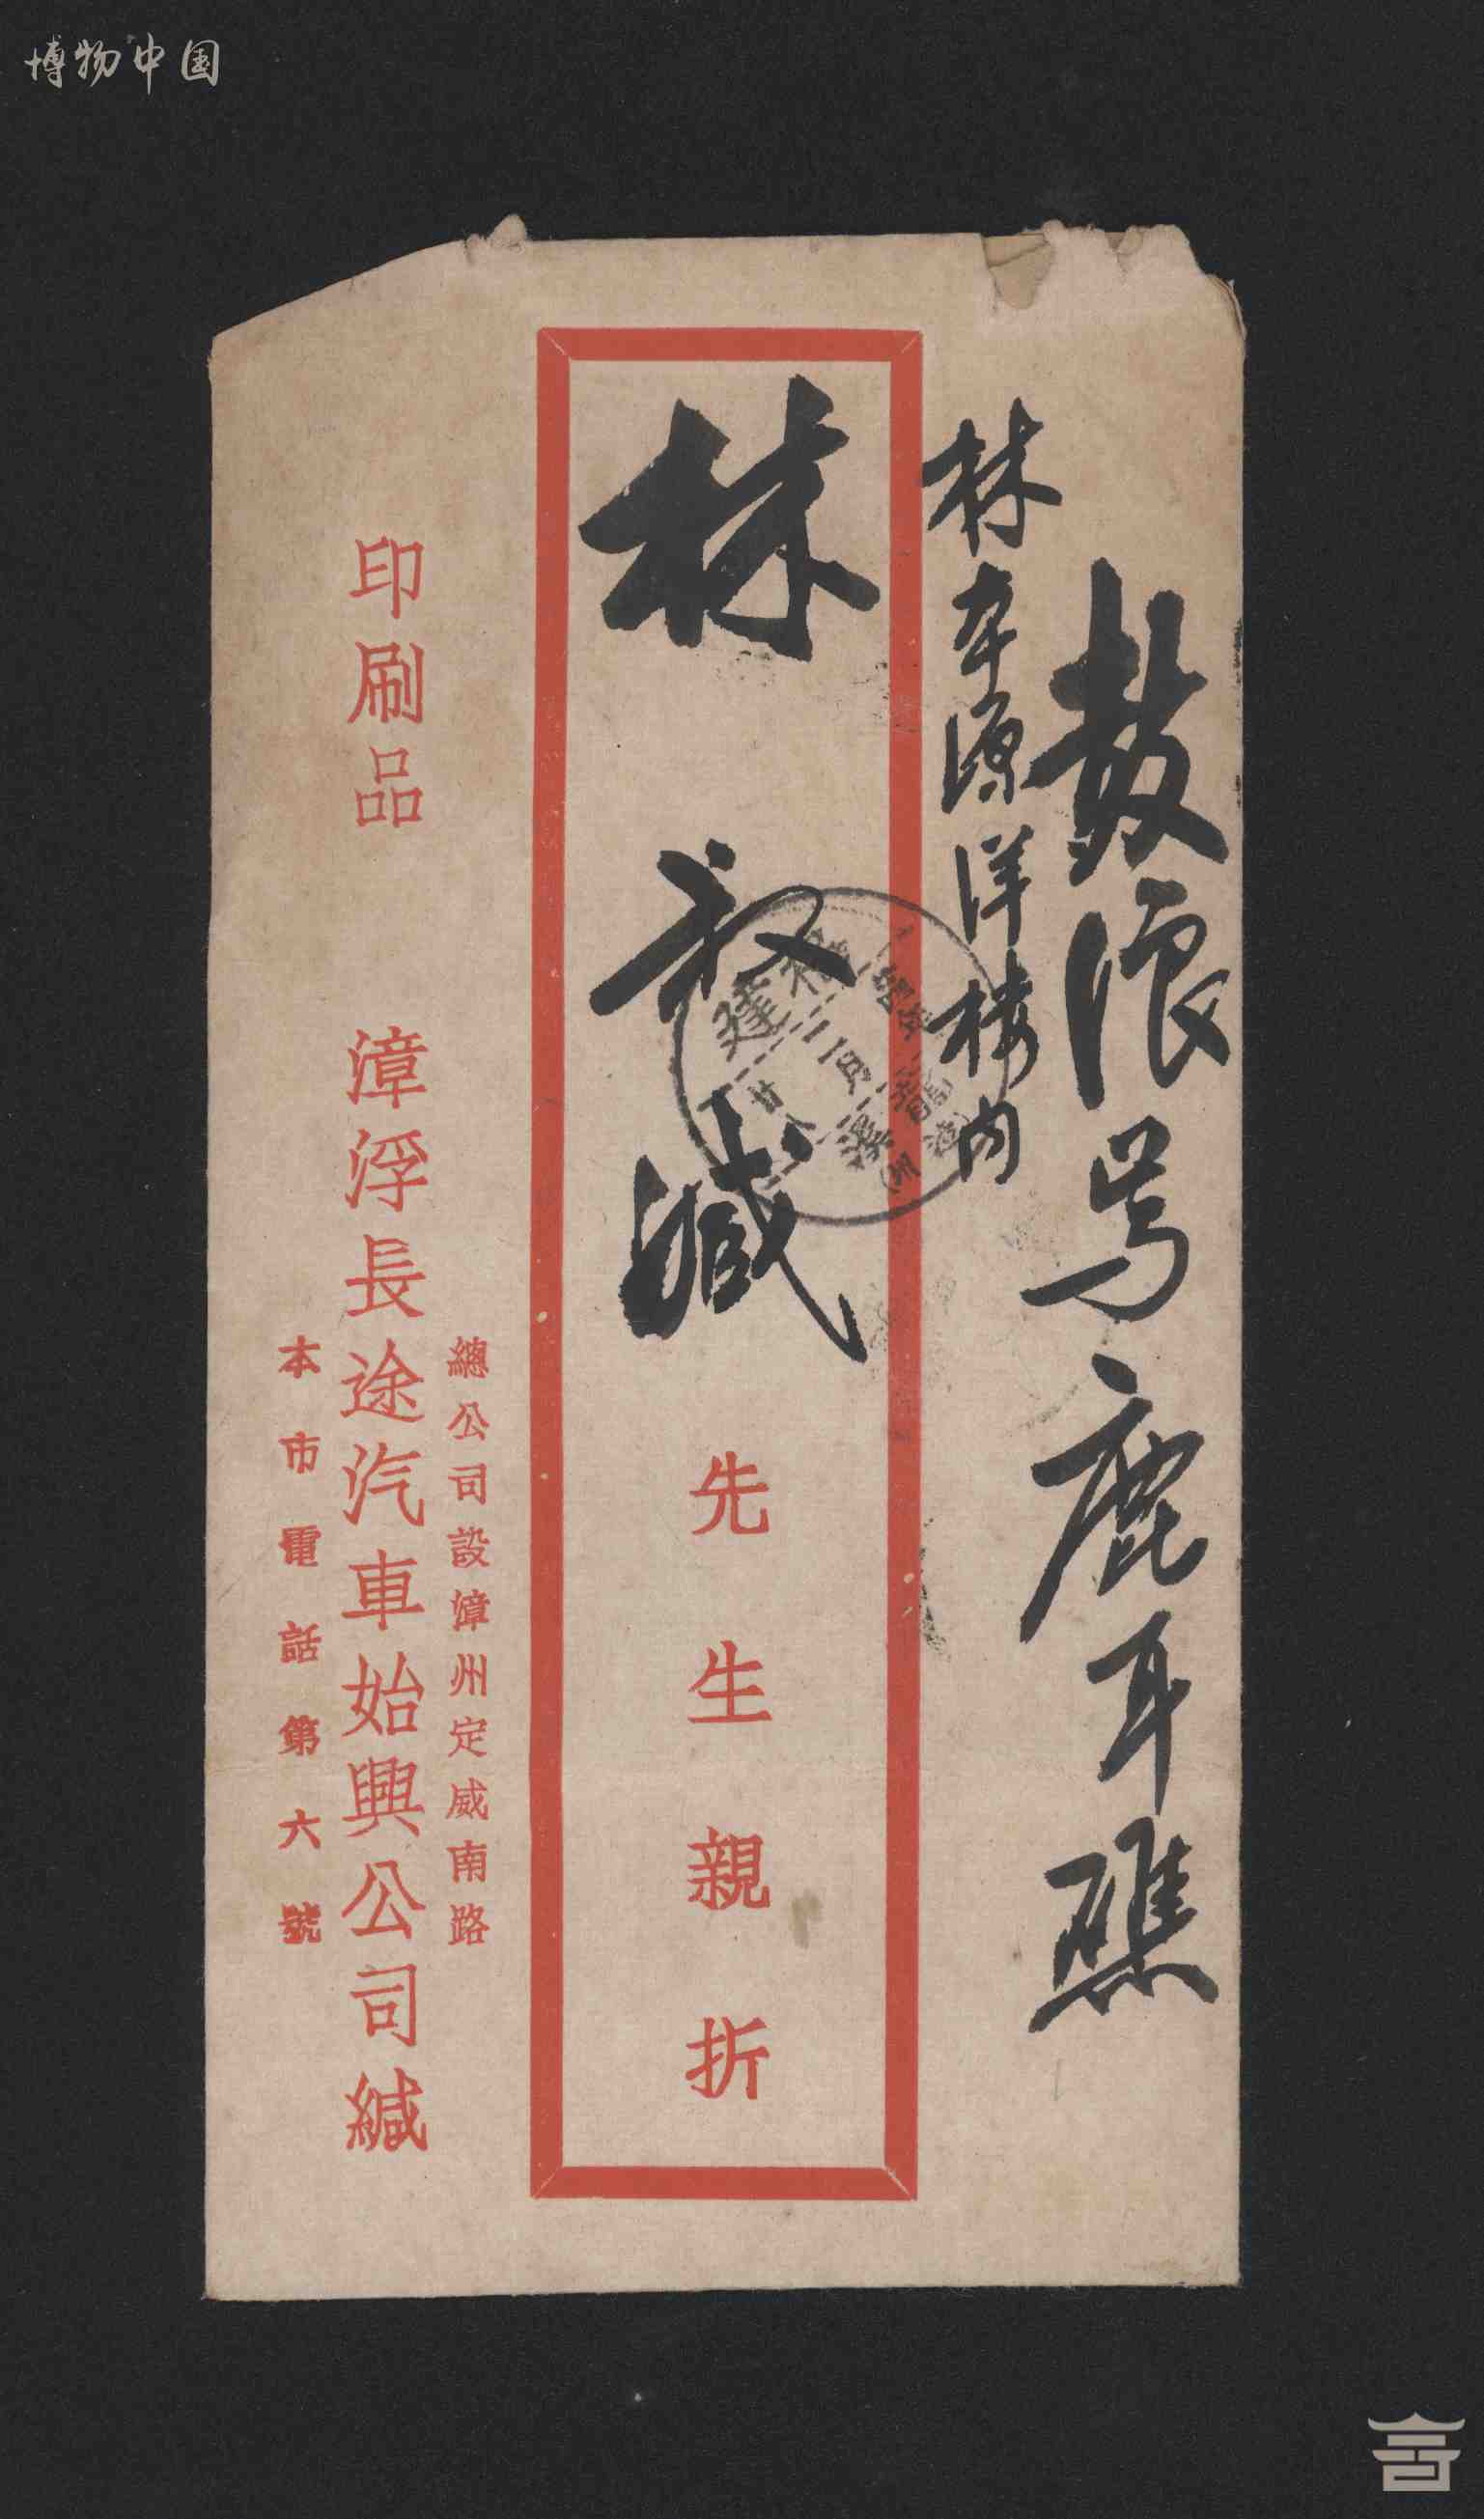 博物中国
鼓浪屿鹿耳礁
林本源洋楼内
林叔臧先生親折
福建
二月
龍溪
總公司設漳州定威南路
印刷品 漳浮長途汽車始興公司緘
本市電話第六號